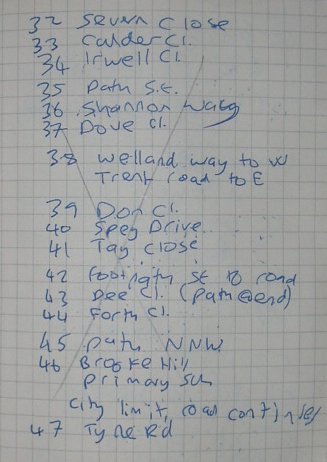 32 Severn Close
33 Calder Cl.
34 Irwell Cl.
35 Path S.E.
36 Shannon Way
37 Dove Cl.
38 Welland way to W
Trent road to E
39 Don Cl.
40 Spey Drive
41 Tay Close
42 Footpath SE to road
43 Dee Cl. (Path @ end)
44 Forth Cl.
45 path NNW
46 Brooke Hill
Primary Sch
City limit, road continues
47 Tyne Rd